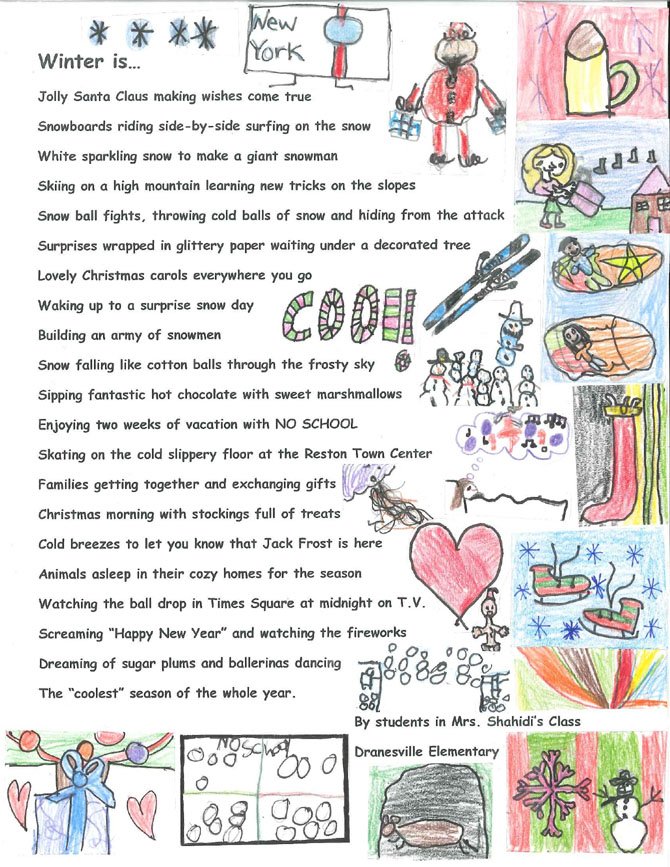 New
York
Winter is…
Jolly Santa Claus making wishes come true
Snowboards riding side-by-side surfing on the snow
White sparkling snow to make a giant snowman
Skiing on a high mountain learning new tricks on the slopes
Snow ball fights, throwing cold balls of snow and hiding from the attack
Surprises wrapped in glittery paper waiting under a decorated tree
Lovely Christmas carols everywhere you go
Waking up to a surprise snow day
Building an army of snowmen
Snow falling like cotton balls through the frosty sky
Sipping fantastic hot chocolate with sweet marshmallows
Enjoying two weeks of vacation with NO SCHOOL
Skating on the cold slippery floor at the Reston Town Center
Families getting together and exchanging gifts
Christmas morning with stockings full of treats
Cold breezes to let you know that Jack Frost is here
Animals asleep in their cozy homes for the season
Watching the ball drop in Times Square at midnight on T.V.
Screaming “Happy New Year” and watching the fireworks
Dreaming of sugar plums and ballerinas dancing
The “coolest” season of the whole year.
By students in Mrs. Shahidi’s Class
Dranesville Elementary
NO School